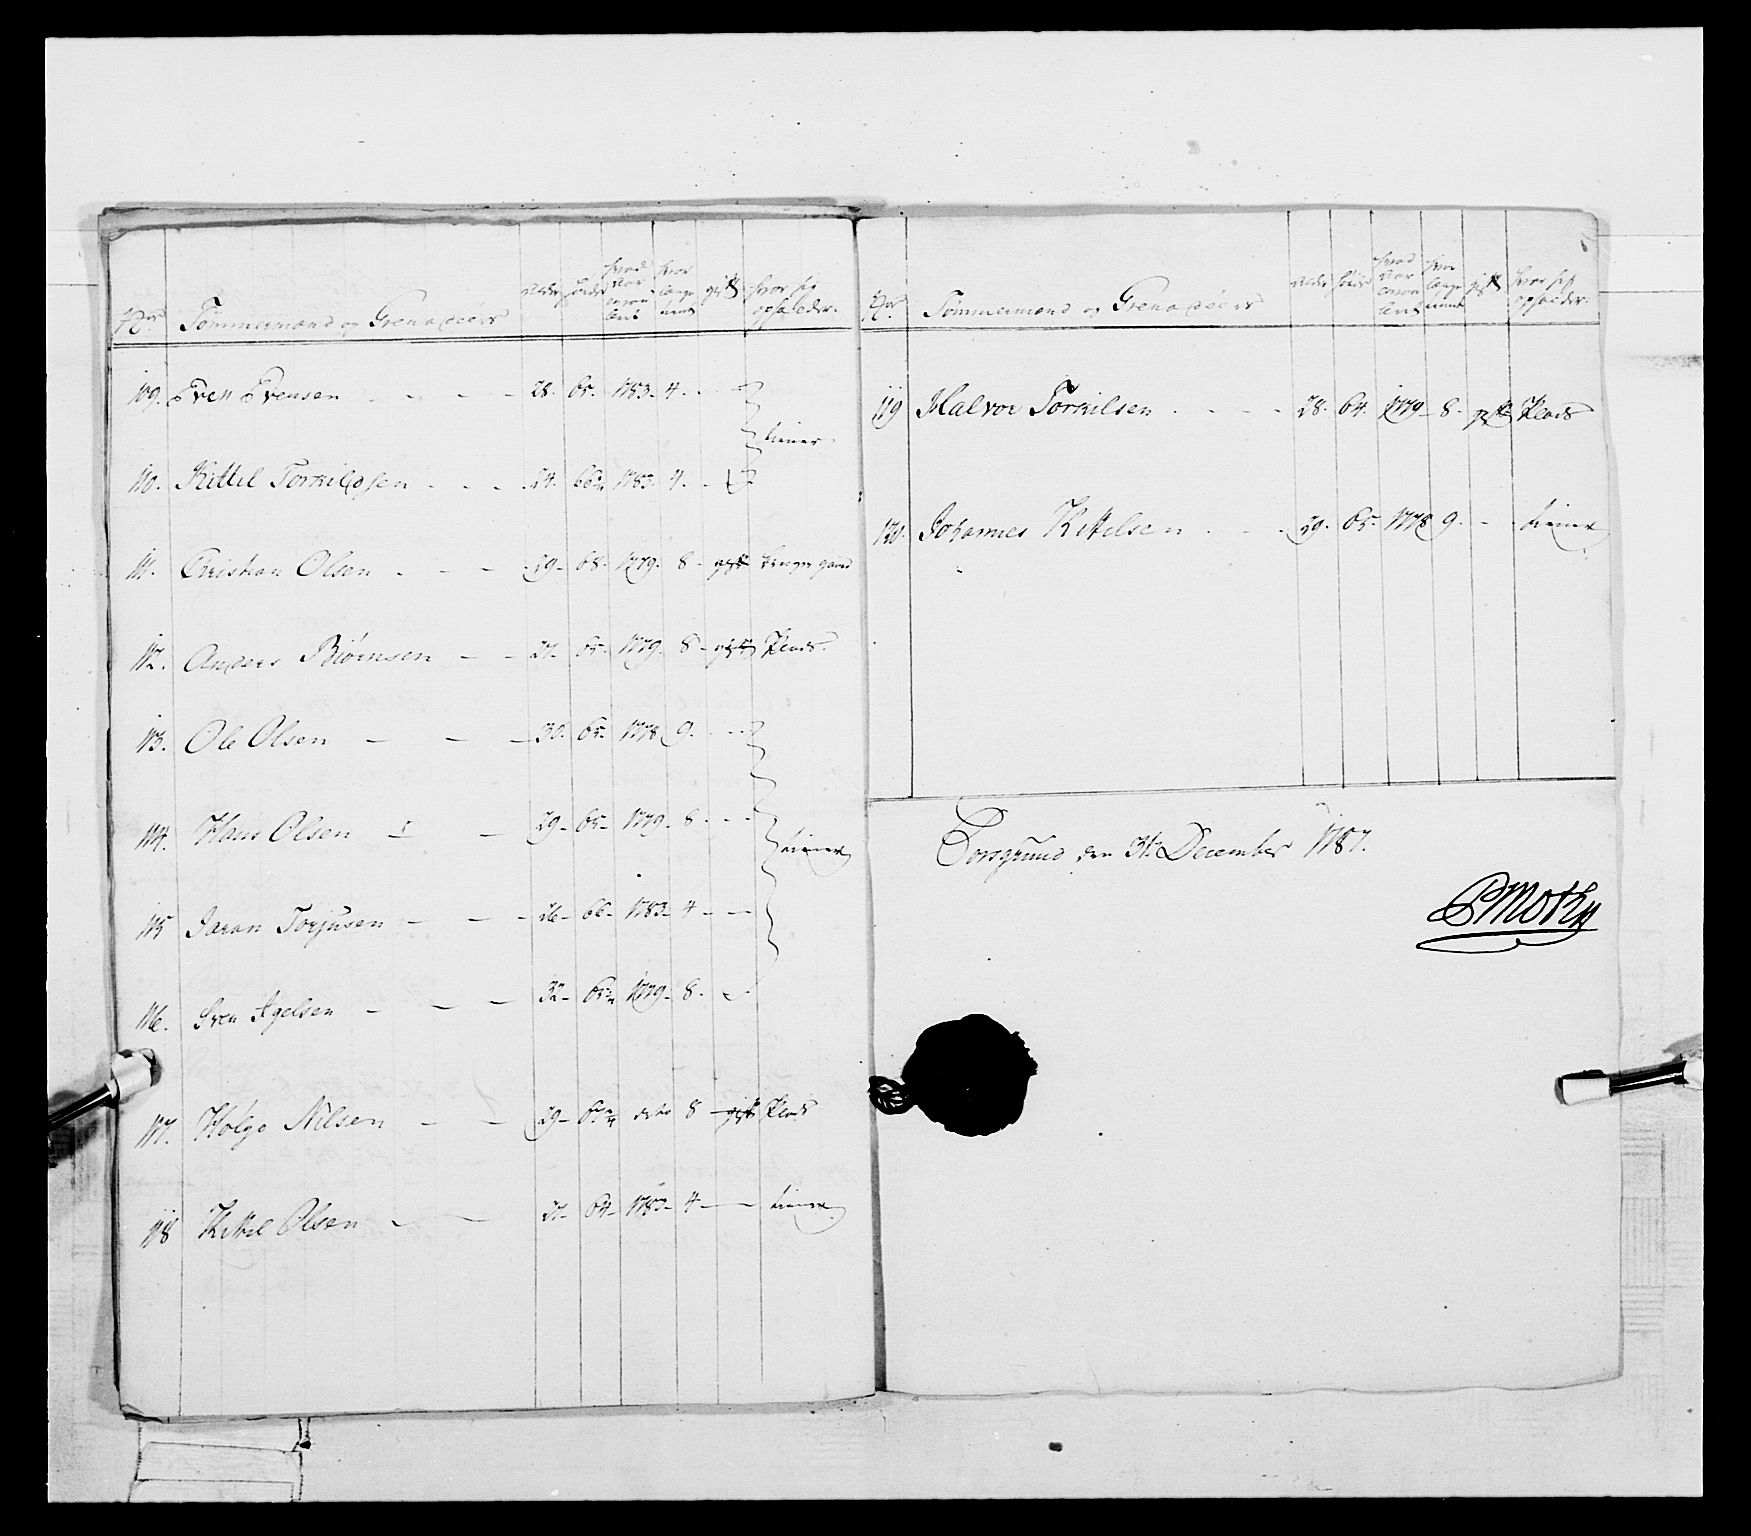 No Tømmermænd og Grenadeers alder høide hvad aar enroulert hvor længe tient gift hvor sig opholder.
109. Even Evensen 28. 65. 1783. 4.
tiener
110. Kittil Torkildsen 24. 66 1783. 4.
111. Christian Olsen 29. 68. 1779. 8 gift
112. Anders Biørnsen 27. 65. 1779. 8 gift Plads.
113. Ole Olsen 30. 65. 1778 9.
114. Hans Olsen 29. 65. 1779. 8
tiener
115 Torjusen 26 66 1783 4
116. Sven 32 65 1779 8.
117. Helge Nilsen 29 65 dito 8 gift Plads
118 Kittil Olsen 27 64 1783 4 tiener
No Tømmermænd og Grenadeers alder høide hvad aar enroulert hvor længe tient gift hvor sig opholder.
119 Halvor Torkilsen 28. 64. 1779 8. gift Plads
120. Johannes Kittelsen 29. 65. 1778 9. tiener
Porsgrund den 31te December 1787.
PMoth